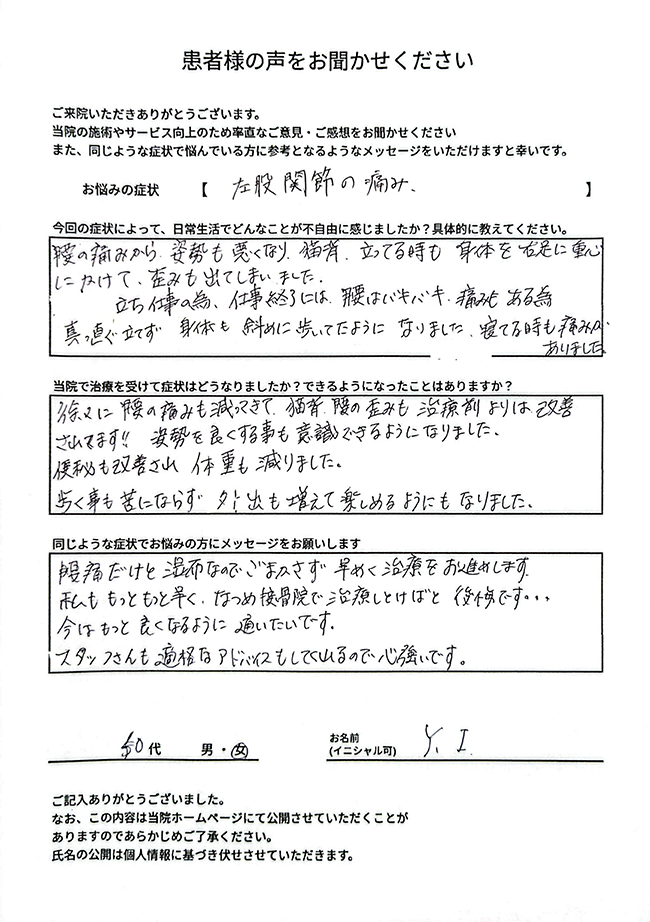 患者様の声をお聞かせください
ご来院いただきありがとうございます。
当院の施術やサービス向上のため率直なご意見・ご感想をお聞かせください
また、同じような症状で悩んでいる方に参考となるようなメッセージをいただけますと幸いです。
お悩みの症状 【 左股関節の痛み. 】
今回の症状によって、日常生活でどんなことが不自由に感じましたか？具体的に教えてください。
腰の痛みから 姿勢も悪くなり、猫背、立ってる時も 身体を右足に重心
にかけて、歪みも出てしまいました.
立ち仕事の為、仕事終了には、腰はバキバキ、痛みもある為
真っ直ぐ立てず 身体も 斜めに歩いてたように なりました、寝てる時も痛みが
ありました
当院で治療を受けて症状はどうなりましたか？できるようになったことはありますか？
徐々に 腰の痛みも減ってきて、猫背、腰の歪みも 治療前よりは改善
されてます!! 姿勢を良くする事も意識できるようになりました、
便秘も改善され 体重も減りました。
歩く事も苦にならず 外出も増えて楽しめるようにもなりました。
同じような症状でお悩みの方にメッセージをお願いします
腰痛だけと 湿布なのでごまかさず 早めく治療をお進めします.
私も もっともっと早く、なつめ接骨院で治療しとけばと 後悔です・・・
今はもっと 良くなるように 通いたいです。
スタッフさんも適格なアドバイスもしてくれるので心強いです。
50代 男・女
お名前
(イニシャル可) Y. I.
ご記入ありがとうございました。
なお、この内容は当院ホームページにて公開させていただくことが
ありますのであらかじめご了承ください。
氏名の公開は個人情報に基づき伏せさせていただきます。